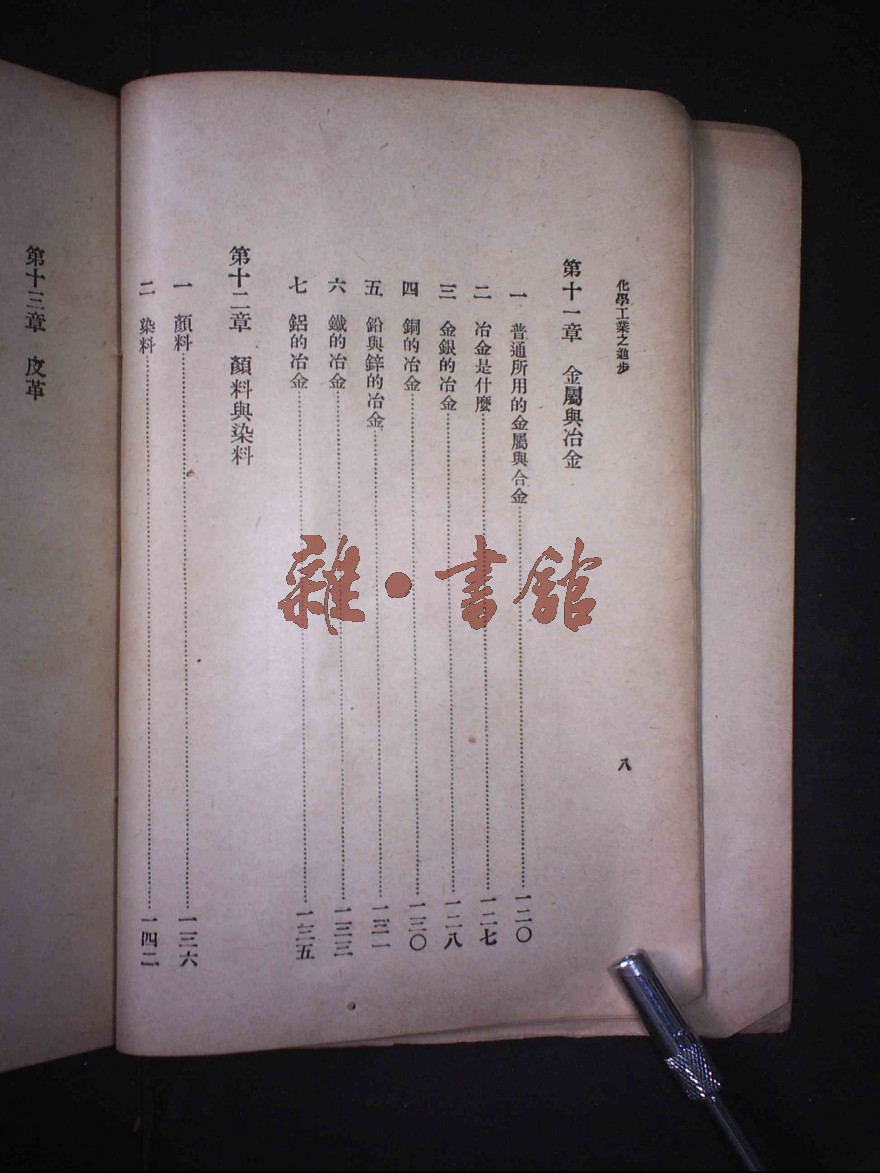 化學工業之進步
八
第十一章 金屬與冶金
一 普通所用的金屬與合金……一二〇
二 冶金是什麼……一二七
三 金銀的冶金……一二八
四 銅的冶金……一三〇
五 鉛與鋅的冶金……一三一
六 鐵的冶金……一三三
七 鋁的冶金……一三五
第十二章 顏料與染料
一 顏料……一三六
二 染料……一四二
第十三章 皮革
雜·書館